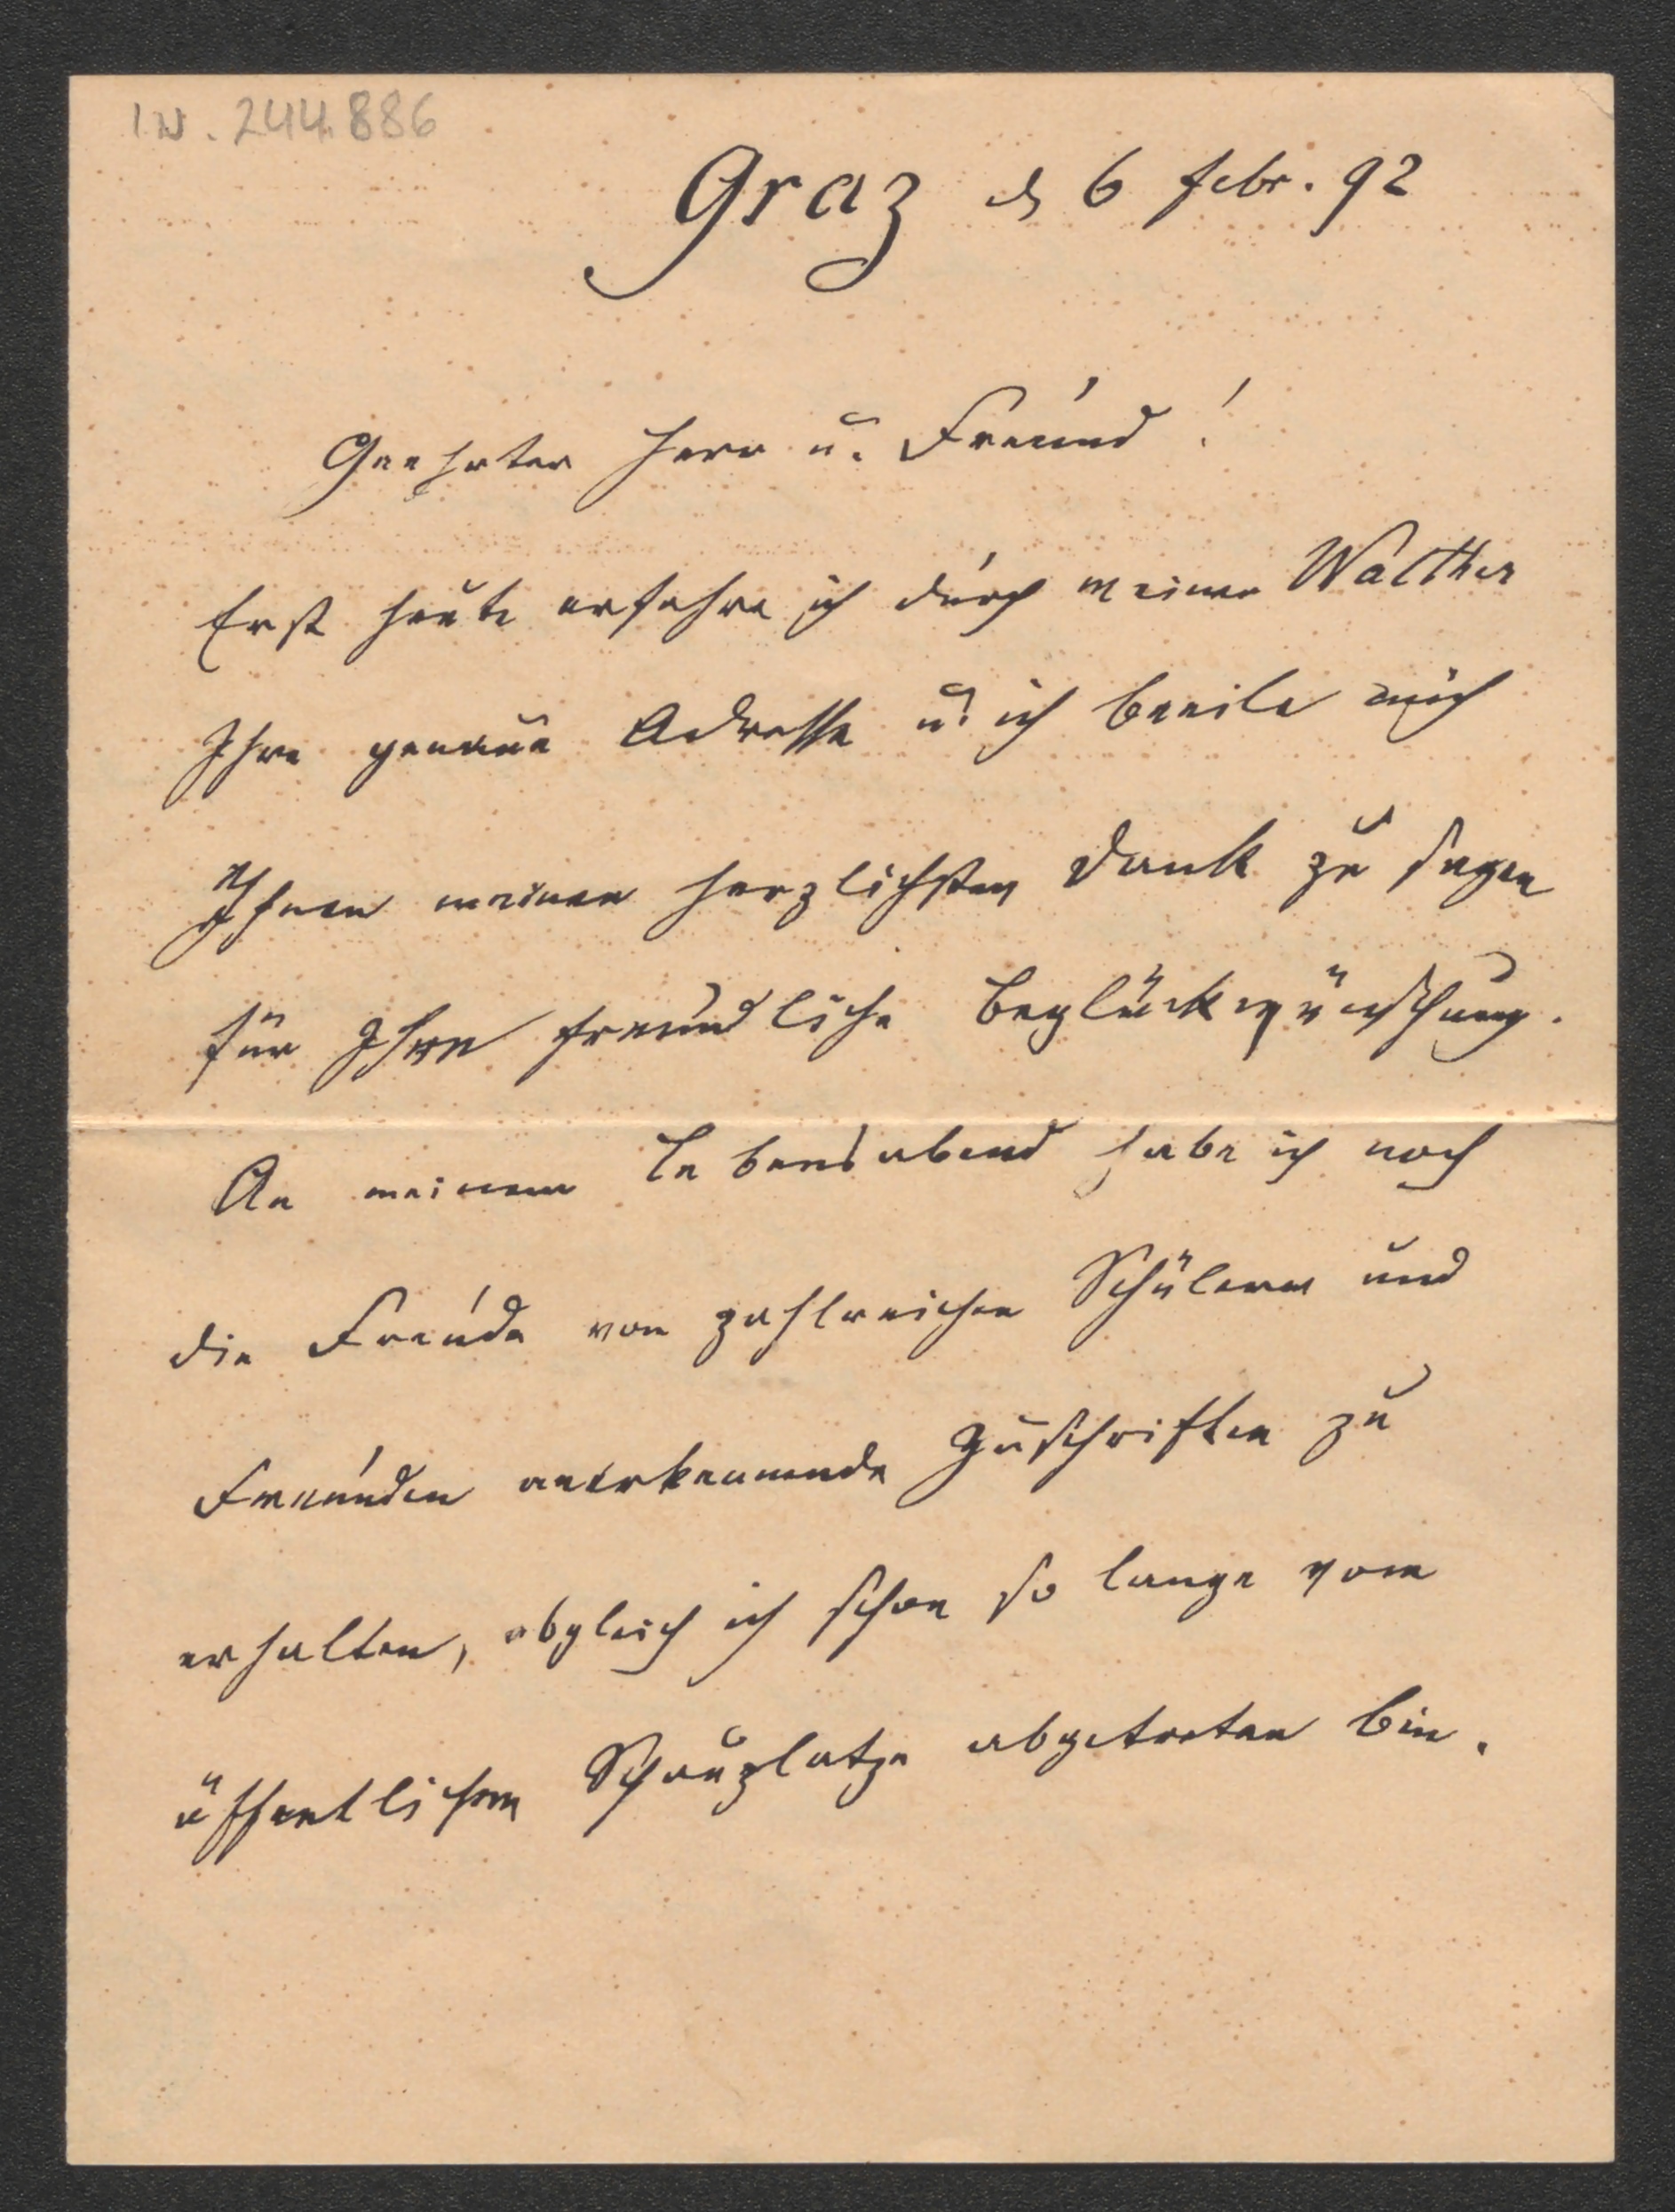 I.N. 244.886
Graz d 6 Febr. 92
Geehrter Herr u. Freund!
Erst heute erfahre ich durch meinen Walther
Ihre genaue Adresse u. ich beeile mich
Ihnen meinen herzlichsten Dank zu sagen
für Ihre freundliche Beglückwünschung.
An meinem Lebensabend habe ich noch
die Freude von zahlreichen Schülern und
Freunden anerkennende Zuschriften zu
erhalten, obgleich ich schon so lange vom
öffentlichen Schauplatze abgetreten bin.